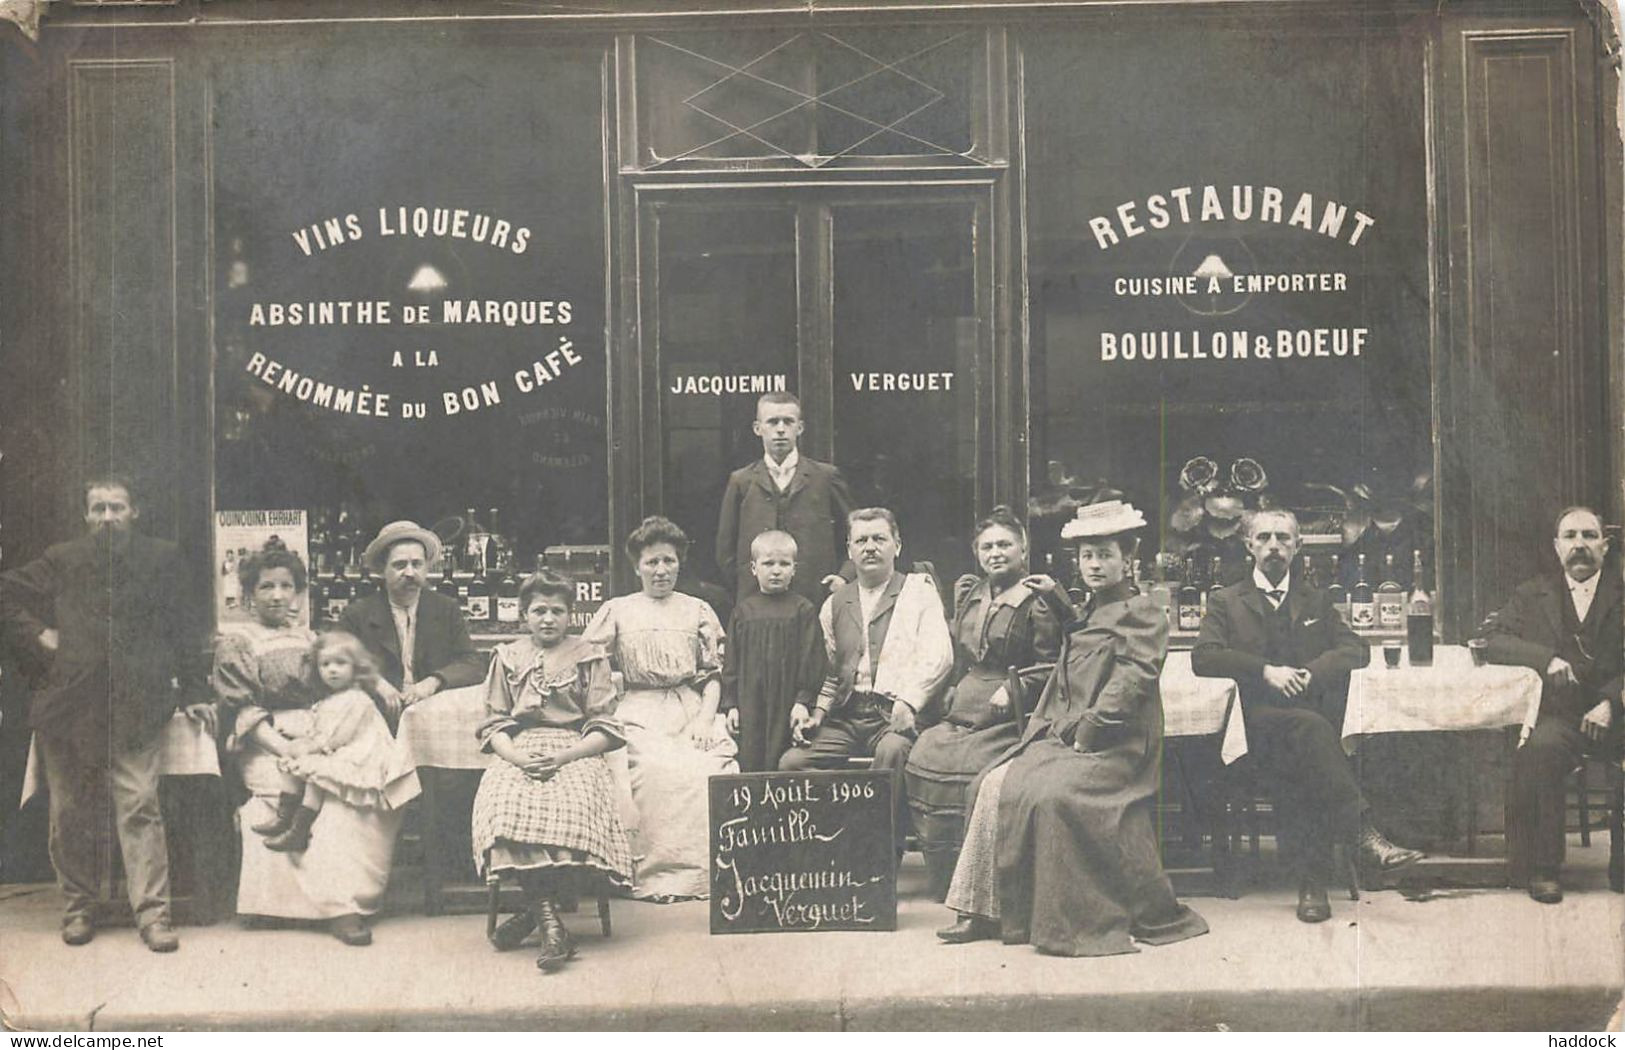 VINS LIQUEURS
ABSINTHE DE MARQUES
A LA
RENOMMÈE DU BON CAFÈ
JACQUEMIN VERGUET
RESTAURANT
CUISINE A EMPORTER
BOUILLON & BOEUF
QUINQUINA EHRHART
RE
19 Août 1906
Famille
Jacquemin-
Verguet
www.delcampe.net
haddock